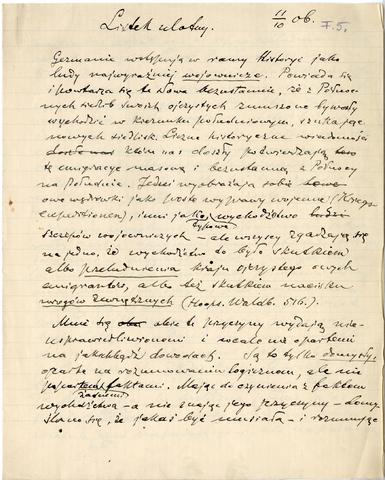 Listek ulotny. 11/10 06. F.5.
Germanie wstępują w ramy Historyi jako
ludy najwyraźniej wojownicze. Powiada się
i powtarza się te słowa bezustannie, że z Północ
nych siedzib swoich ojczystych zmuszone bywały
wychodzić w kierunku południowym, szukając
nowych siedlisk. Liczne historyczne wiadomości
które nas doszły poświadczają
tę emigracyę masową i bezustanną z Północy
na Południe. Jedni wyobrażają sobie
owe wędrówki jako proste wyprawy wojenne (Kriegs
expeditionen), inni jako wychodźtwo
tylko
szczepów wojowniczych – ale wszyscy zgadzają się
na jedno, że wychodźtwo to było skutkiem
albo przeludnienia kraju ojczystego owych
emigrantów, albo też skutkiem nacisku
wrogów zewnętrznych (Hoops. Waldb. 516.).
Mnie się obie te przyczyny wydają nie-
usprawiedliwionemi i wcale nie opartemi
na jakichbądź dowodach. Są to tylko domysły,
oparte na rozumowaniu logicznem, ale nie
poparte faktami. Mając do czynienia z faktem
żadnemi
wychodźtwa – a nie znając jego przyczyny – domy
ślano się, że jakaś być musiała – i rozumując